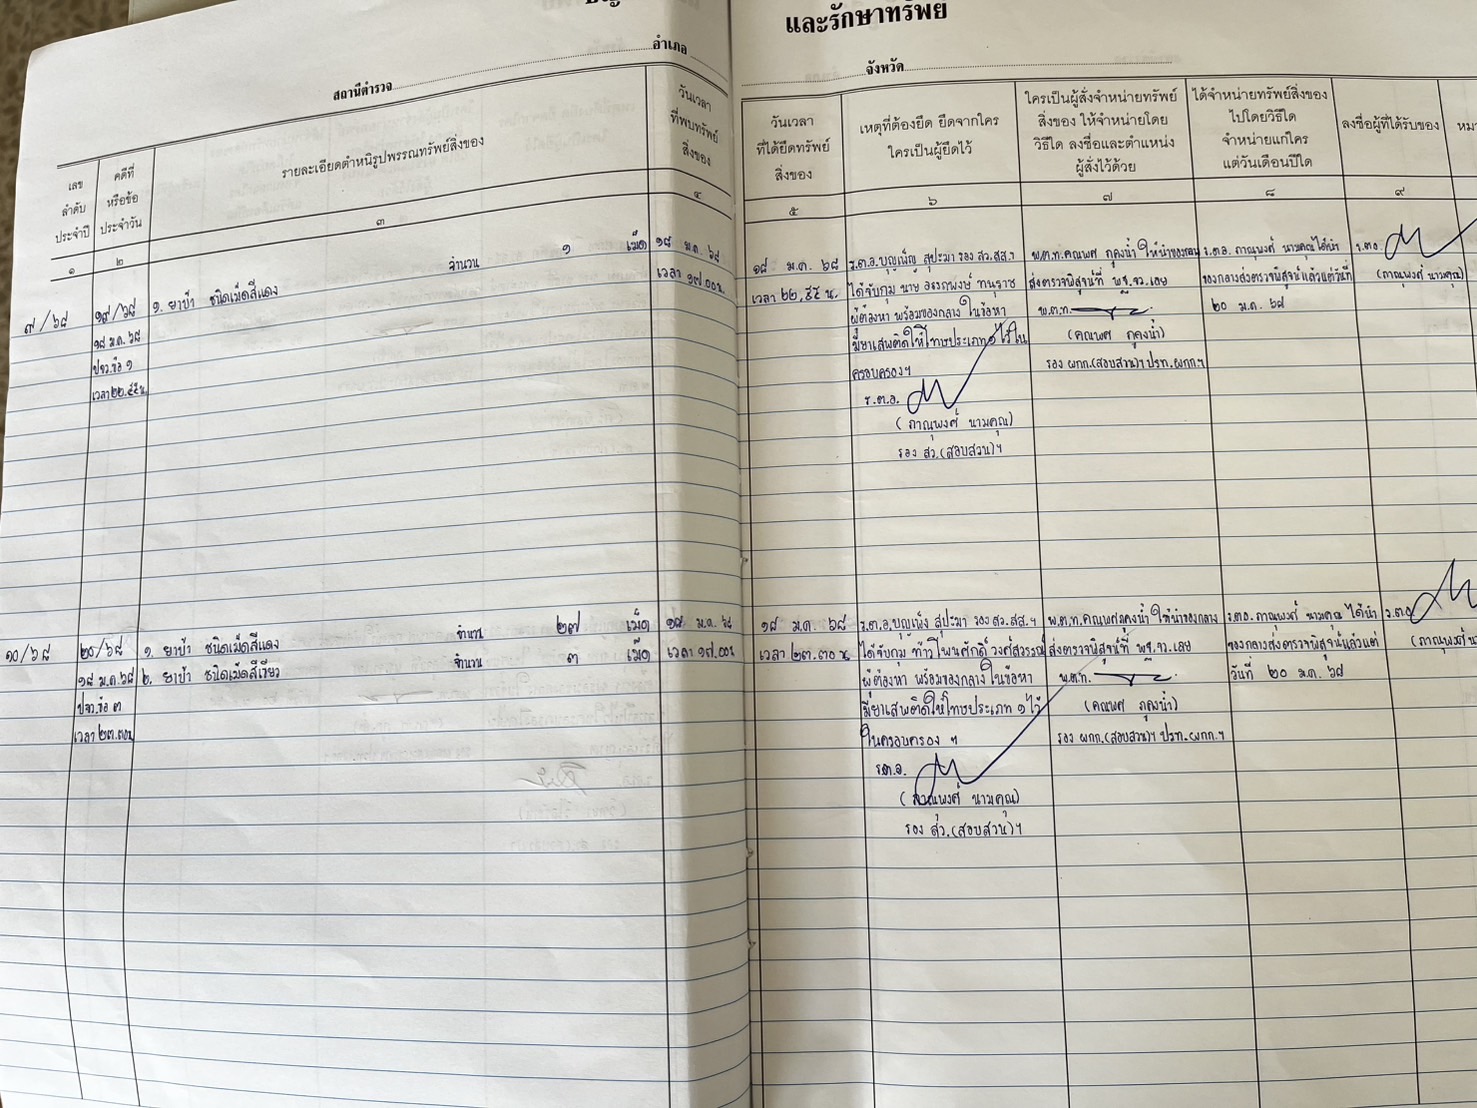 และรักษาทรัพย์
สถานีตำรวจ
อำเภอ
จังหวัด
เลข
ลำดับ
ประจำปี
คดีที่
หรือข้อ
ประจำวัน
รายละเอียดตำหนิรูปพรรณทรัพย์สิ่งของ
วันเวลา
ที่พบทรัพย์
สิ่งของ
วันเวลา
ที่ได้ยึดทรัพย์
สิ่งของ
เหตุที่ต้องยึด ยึดจากใคร
ใครเป็นผู้ยึดไว้
ใครเป็นผู้สั่งจำหน่ายทรัพย์
สิ่งของ ให้จำหน่ายโดย
วิธีใด ลงชื่อและตำแหน่ง
ผู้สั่งไว้ด้วย
ได้จำหน่ายทรัพย์สิ่งของ
ไปโดยวิธีใด
จำหน่ายแก่ใคร
แต่วันเดือนปีใด
ลงชื่อผู้ที่ได้รับของ
๑
๒
๓
๔
๕
๖
๗
๘
๙
๙/๖๘
๑๙/๖๘
๑๘ ม.ค. ๖๘
ปจว.ข้อ ๑
เวลา๒๒.๕๕น.
๑. ยาบ้า ชนิดเม็ดสีแดง จำนวน ๑ เม็ด
๑๘ ม.ค. ๖๘
เวลา ๑๗.๐๐น.
๑๘ ม.ค. ๖๘
เวลา ๒๒.๕๕ น.
ร.ต.อ.บุญเพ็ง สุปะมา รอง สว.สส.ฯ
ได้จับกุม นาย
ผู้ต้องหา พร้อมของกลาง ในข้อหา
มียาเสพติดให้โทษประเภท ๑ ไว้ใน
ครอบครองฯ
ร.ต.อ.
( ภาณุพงศ์ นามคุณ)
รอง สว.(สอบสวน)ฯ
พ.ต.ท.คณพศ ภูคงน้ำ ให้นำของกลาง
ส่งตรวจพิสูจน์ที่ พฐ.จว.เลย
พ.ต.ท.
(คณพศ ภูคงน้ำ)
รอง ผกก.(สอบสวน)ฯ ปรท.ผกก.ฯ
ร.ต.อ. ภาณุพงศ์ นามคุณได้นำ
ของกลางส่งตรวจพิสูจน์แล้วแต่วันที่
๒๐ ม.ค. ๖๘
ร.ต.อ.
(ภาณุพงศ์ นามคุณ)
๑๐/๖๘
๒๐/๖๘
๑๘ ม.ค.๖๘
ปจว.ข้อ ๓
เวลา๒๓.๓๐น
๑. ยาบ้า ชนิดเม็ดสีแดง จำนวน ๒๗ เม็ด
๒. ยาบ้า ชนิดเม็ดสีเขียว จำนวน ๓ เม็ด
๑๘ ม.ค. ๖๘
เวลา ๑๗.๐๐น
๑๘ ม.ค. ๖๘
เวลา ๒๓.๓๐ น
ร.ต.อ.บุญเพ็ง สุปะมา รอง สว.สส.ฯ
ได้จับกุม ท้าวไพนศักดิ์ วงศ์สุวรรณ์
ผู้ต้องหา พร้อมของกลาง ในข้อหา
มียาเสพติดให้โทษประเภท ๑ ไว้
ในครอบครอง ฯ
ร.ต.อ.
( ภาณุพงศ์ นามคุณ)
รอง สว.(สอบสวน)ฯ
พ.ต.ท.คณพศ ภูคงน้ำ ให้นำของกลาง
ส่งตรวจพิสูจน์ที่ พฐ.จว.เลย
พ.ต.ท.
(คณพศ ภูคงน้ำ)
รอง ผกก.(สอบสวน)ฯ ปรท.ผกก.ฯ
ร.ต.อ. ภาณุพงศ์ นามคุณ ได้นำ
ของกลางส่งตรวจพิสูจน์แล้วแต่
วันที่ ๒๐ ม.ค. ๖๘
ร.ต.อ
(ภาณุพงศ์